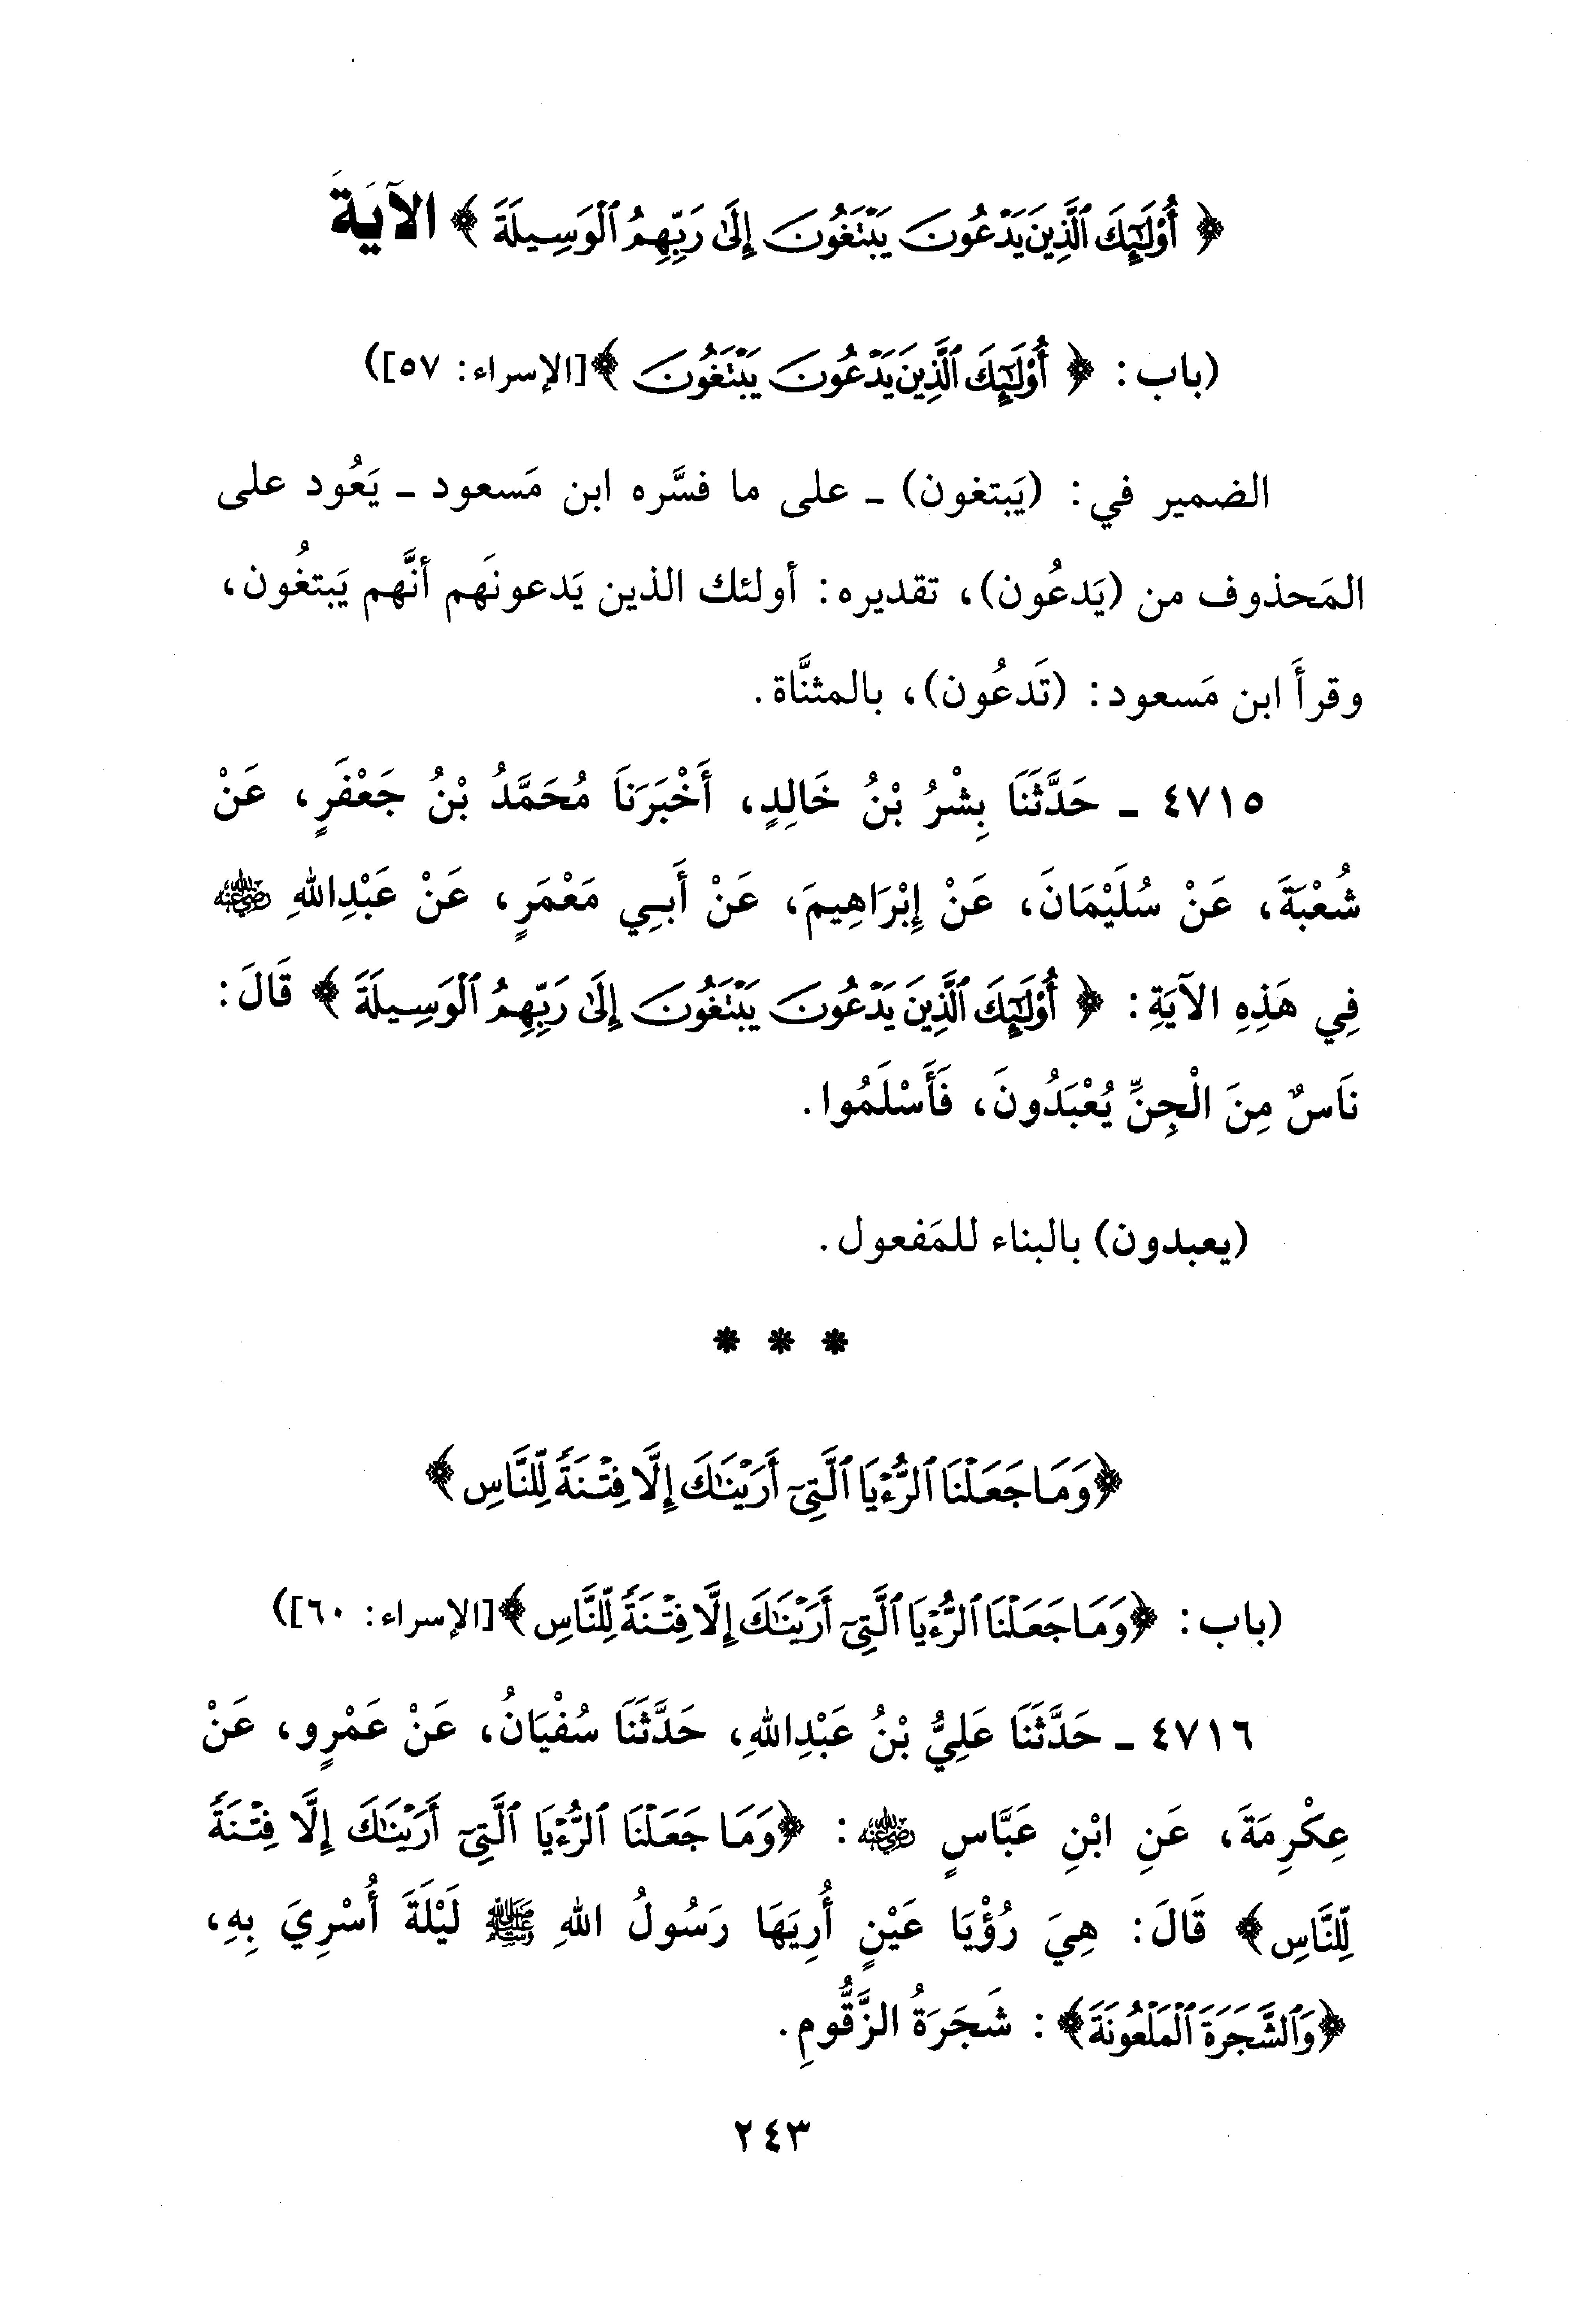 ﴿ أُوْلَٰٓئِكَ ٱلَّذِينَ يَدْعُونَ يَبْتَغُونَ إِلَىٰ رَبِّهِمُ ٱلْوَسِيلَةَ ﴾ الآيَةَ
(باب: ﴿ أُوْلَٰٓئِكَ ٱلَّذِينَ يَدْعُونَ يَبْتَغُونَ ﴾[الإسراء: ٥٧])
الضمير في: (يَبتغون) ـ على ما فسَّره ابن مَسعود ـ يَعُود على
المَحذوف من (يَدعُون)، تقديره: أولئك الذين يَدعونَهم أنَّهم يَبتغُون،
وقرأَ ابن مَسعود: (تَدعُون)، بالمثنَّاة.
٤٧١٥ ـ حَدَّثَنَا بِشْرُ بْنُ خَالِدٍ، أَخْبَرَنَا مُحَمَّدُ بْنُ جَعْفَرٍ، عَنْ
شُعْبَةَ، عَنْ سُلَيْمَانَ، عَنْ إِبْرَاهِيمَ، عَنْ أَبِي مَعْمَرٍ، عَنْ عَبْدِاللهِ رضي الله عنه
فِي هَذِهِ الآيَةِ: ﴿ أُوْلَٰٓئِكَ ٱلَّذِينَ يَدْعُونَ يَبْتَغُونَ إِلَىٰ رَبِّهِمُ ٱلْوَسِيلَةَ ﴾ قَالَ:
نَاسٌ مِنَ الْجِنِّ يُعْبَدُونَ، فَأَسْلَمُوا.
(يعبدون) بالبناء للمَفعول.
* * *
﴿وَمَا جَعَلْنَا ٱلرُّءْيَا ٱلَّتِىٓ أَرَيْنَٰكَ إِلَّا فِتْنَةً لِّلنَّاسِ ﴾
(باب: ﴿وَمَا جَعَلْنَا ٱلرُّءْيَا ٱلَّتِىٓ أَرَيْنَٰكَ إِلَّا فِتْنَةً لِّلنَّاسِ ﴾[الإسراء: ٦٠])
٤٧١٦ ـ حَدَّثَنَا عَلِيُّ بْنُ عَبْدِاللهِ، حَدَّثَنَا سُفْيَانُ، عَنْ عَمْرٍو، عَنْ
عِكْرِمَةَ، عَنِ ابْنِ عَبَّاسٍ رضي الله عنه: ﴿وَمَا جَعَلْنَا ٱلرُّءْيَا ٱلَّتِىٓ أَرَيْنَٰكَ إِلَّا فِتْنَةً
لِّلنَّاسِ ﴾ قَالَ: هِيَ رُؤْيَا عَيْنٍ أُرِيَهَا رَسُولُ اللهِ ﷺ لَيْلَةَ أُسْرِيَ بِهِ،
﴿وَٱلشَّجَرَةَ ٱلْمَلْعُونَةَ﴾: شَجَرَةُ الزَّقُّومِ.
٢٤٣